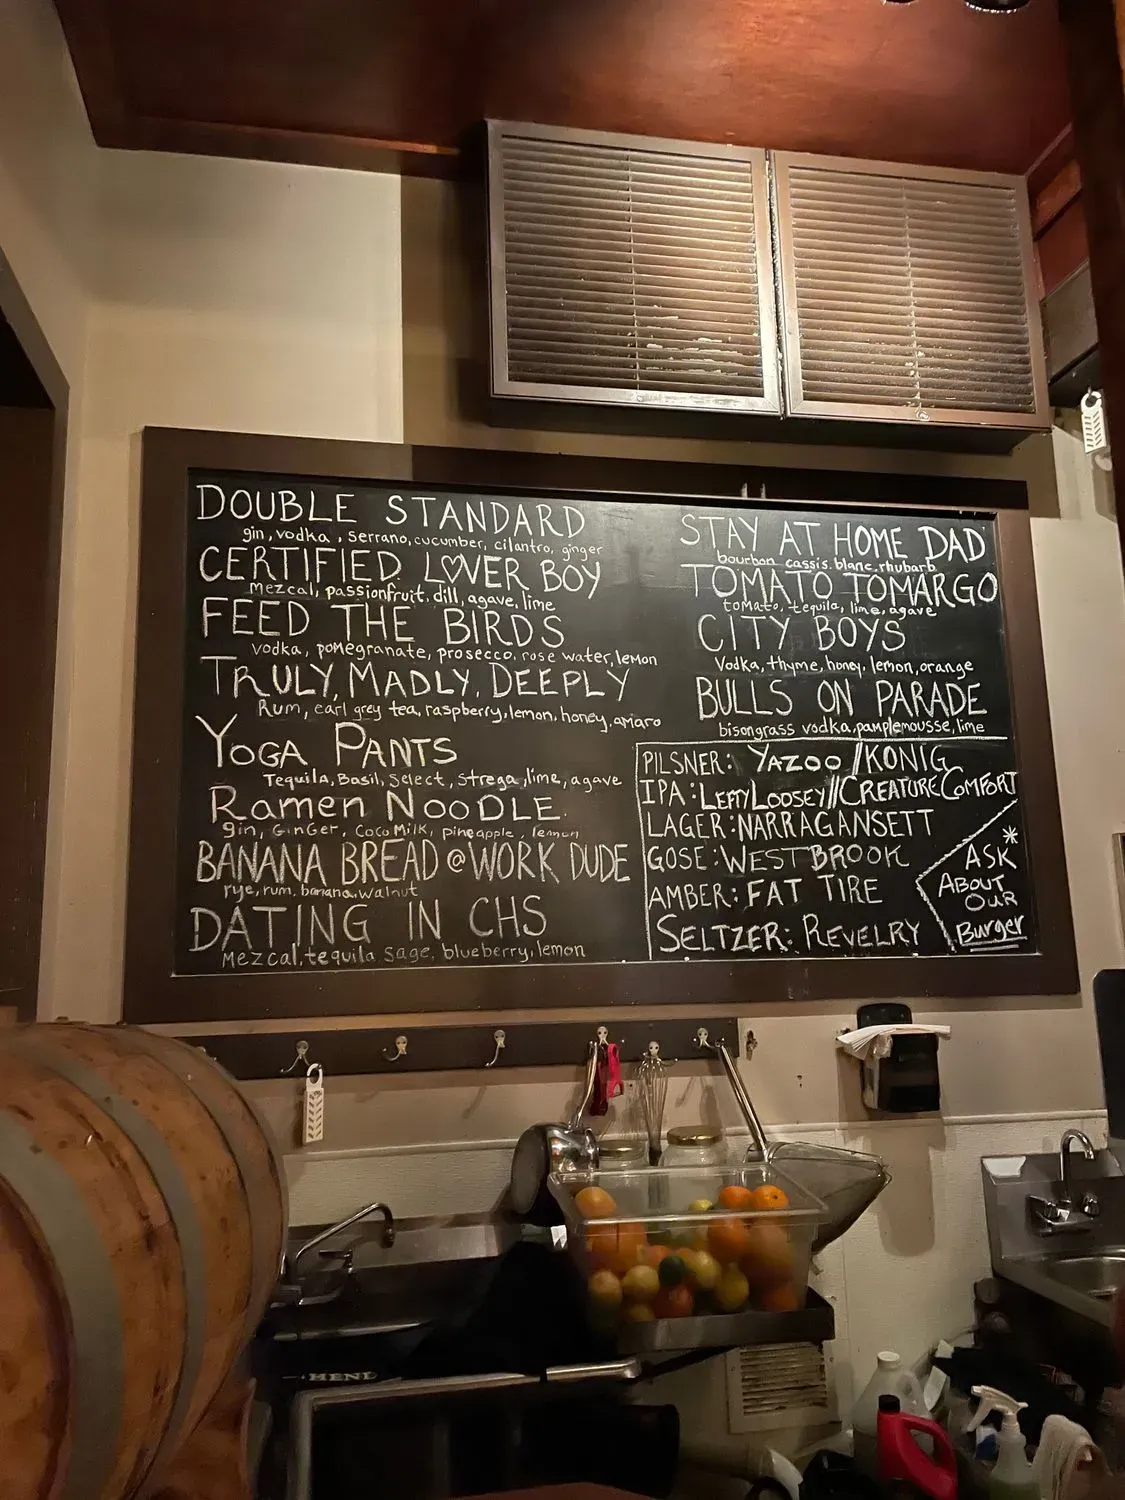 DOUBLE STANDARD
gin, vodka, serrano, cucumber, cilantro, ginger
CERTIFIED L♡VER BOY
mezcal, passionfruit, dill, agave, lime
FEED THE BIRDS
vodka, pomegranate, prosecco, rose water, lemon
TRULY, MADLY, DEEPLY
Rum, earl grey tea, raspberry, lemon, honey, amaro
YOGA PANTS
Tequila, Basil, Select, Strega, lime, agave
Ramen NOODLE
gin, GinGer, Coco Milk, pineapple, lemon
BANANA BREAD @ WORK DUDE
rye, rum, banana, walnut
DATING IN CHS
Mezcal, tequila sage, blueberry, lemon
STAY AT HOME DAD
bourbon cassis, blanc, rhubarb
TOMATO TOMARGO
tomato, tequila, lime, agave
CITY BOYS
Vodka, thyme, honey, lemon, orange
BULLS ON PARADE
bisongrass vodka, pamplemousse, lime
PILSNER: YAZOO // KONIG
IPA: LEFTY LOOSEY // CREATURE COMFORT
LAGER: NARRAGANSETT
GOSE: WESTBROOK
AMBER: FAT TIRE
SELTZER: REVELRY
*
ASK
ABOUT
OUR
Burger